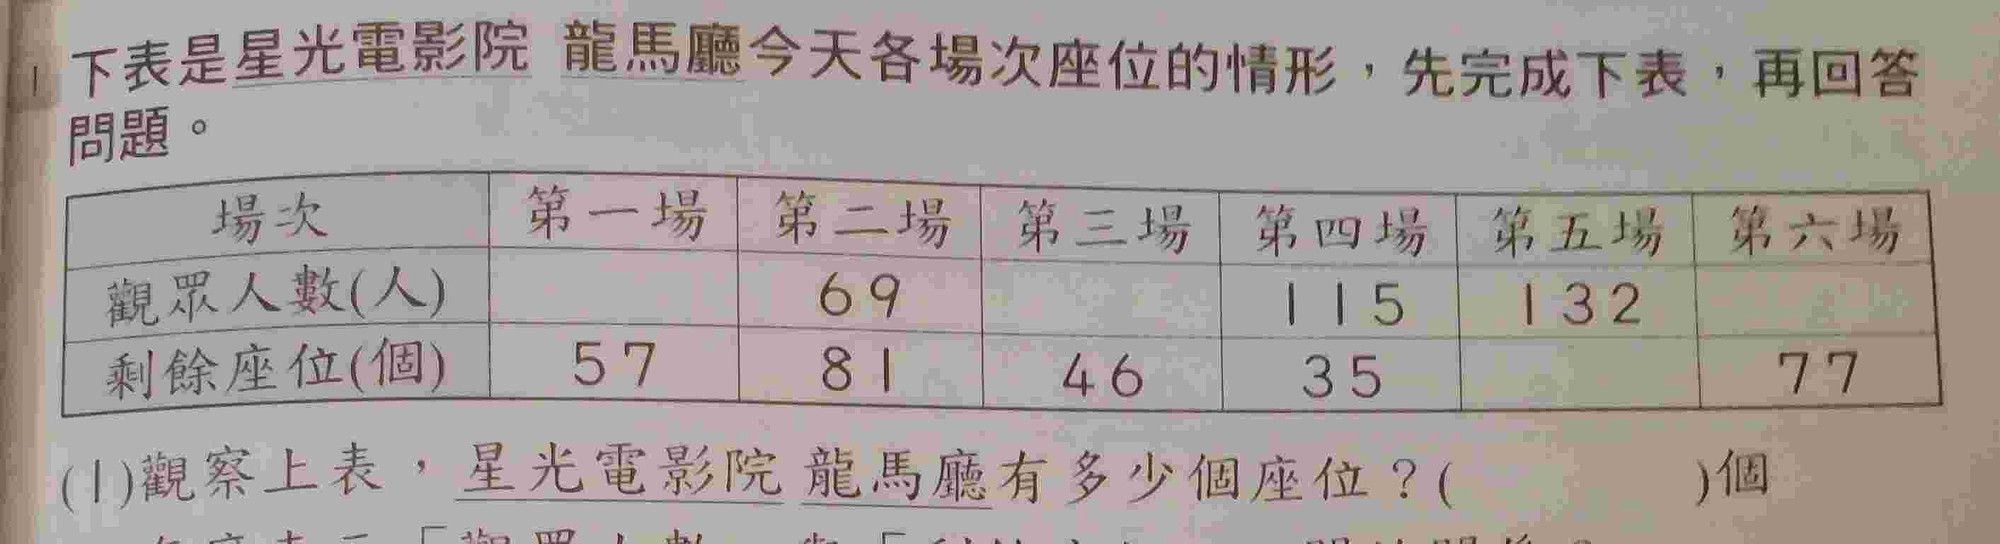 1 下表是星光電影院 龍馬廳今天各場次座位的情形，先完成下表，再回答
問題。
場次 第一場 第二場 第三場 第四場 第五場 第六場
觀眾人數(人) 69 115 132
剩餘座位(個) 57 81 46 35 77
(1)觀察上表，星光電影院 龍馬廳有多少個座位？( )個